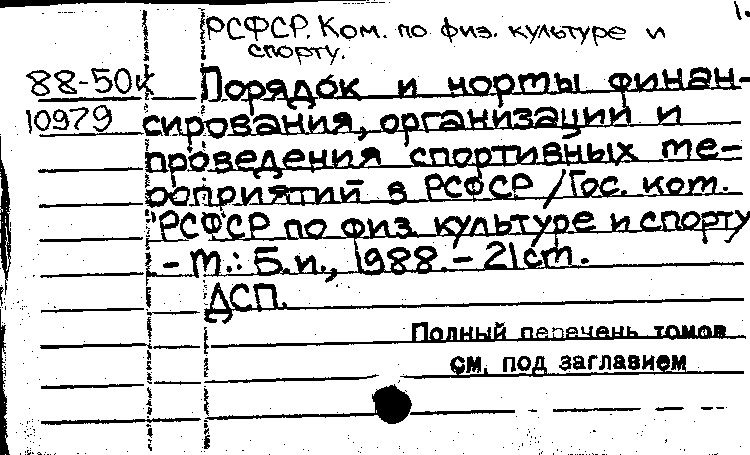 1.
РСФСР. Ком. по физ. культуре и
спорту.
88-50к Порядок и нормы финан-
10979 сирования, организации и
проведения спортивных ме-
роприятий в РСФСР / Гос. ком.
РСФСР по физ. культуре и спорту
. - М.: Б.и., 1988. - 21 cm.
ДСП.
Полный перечень томов
см. под заглавием